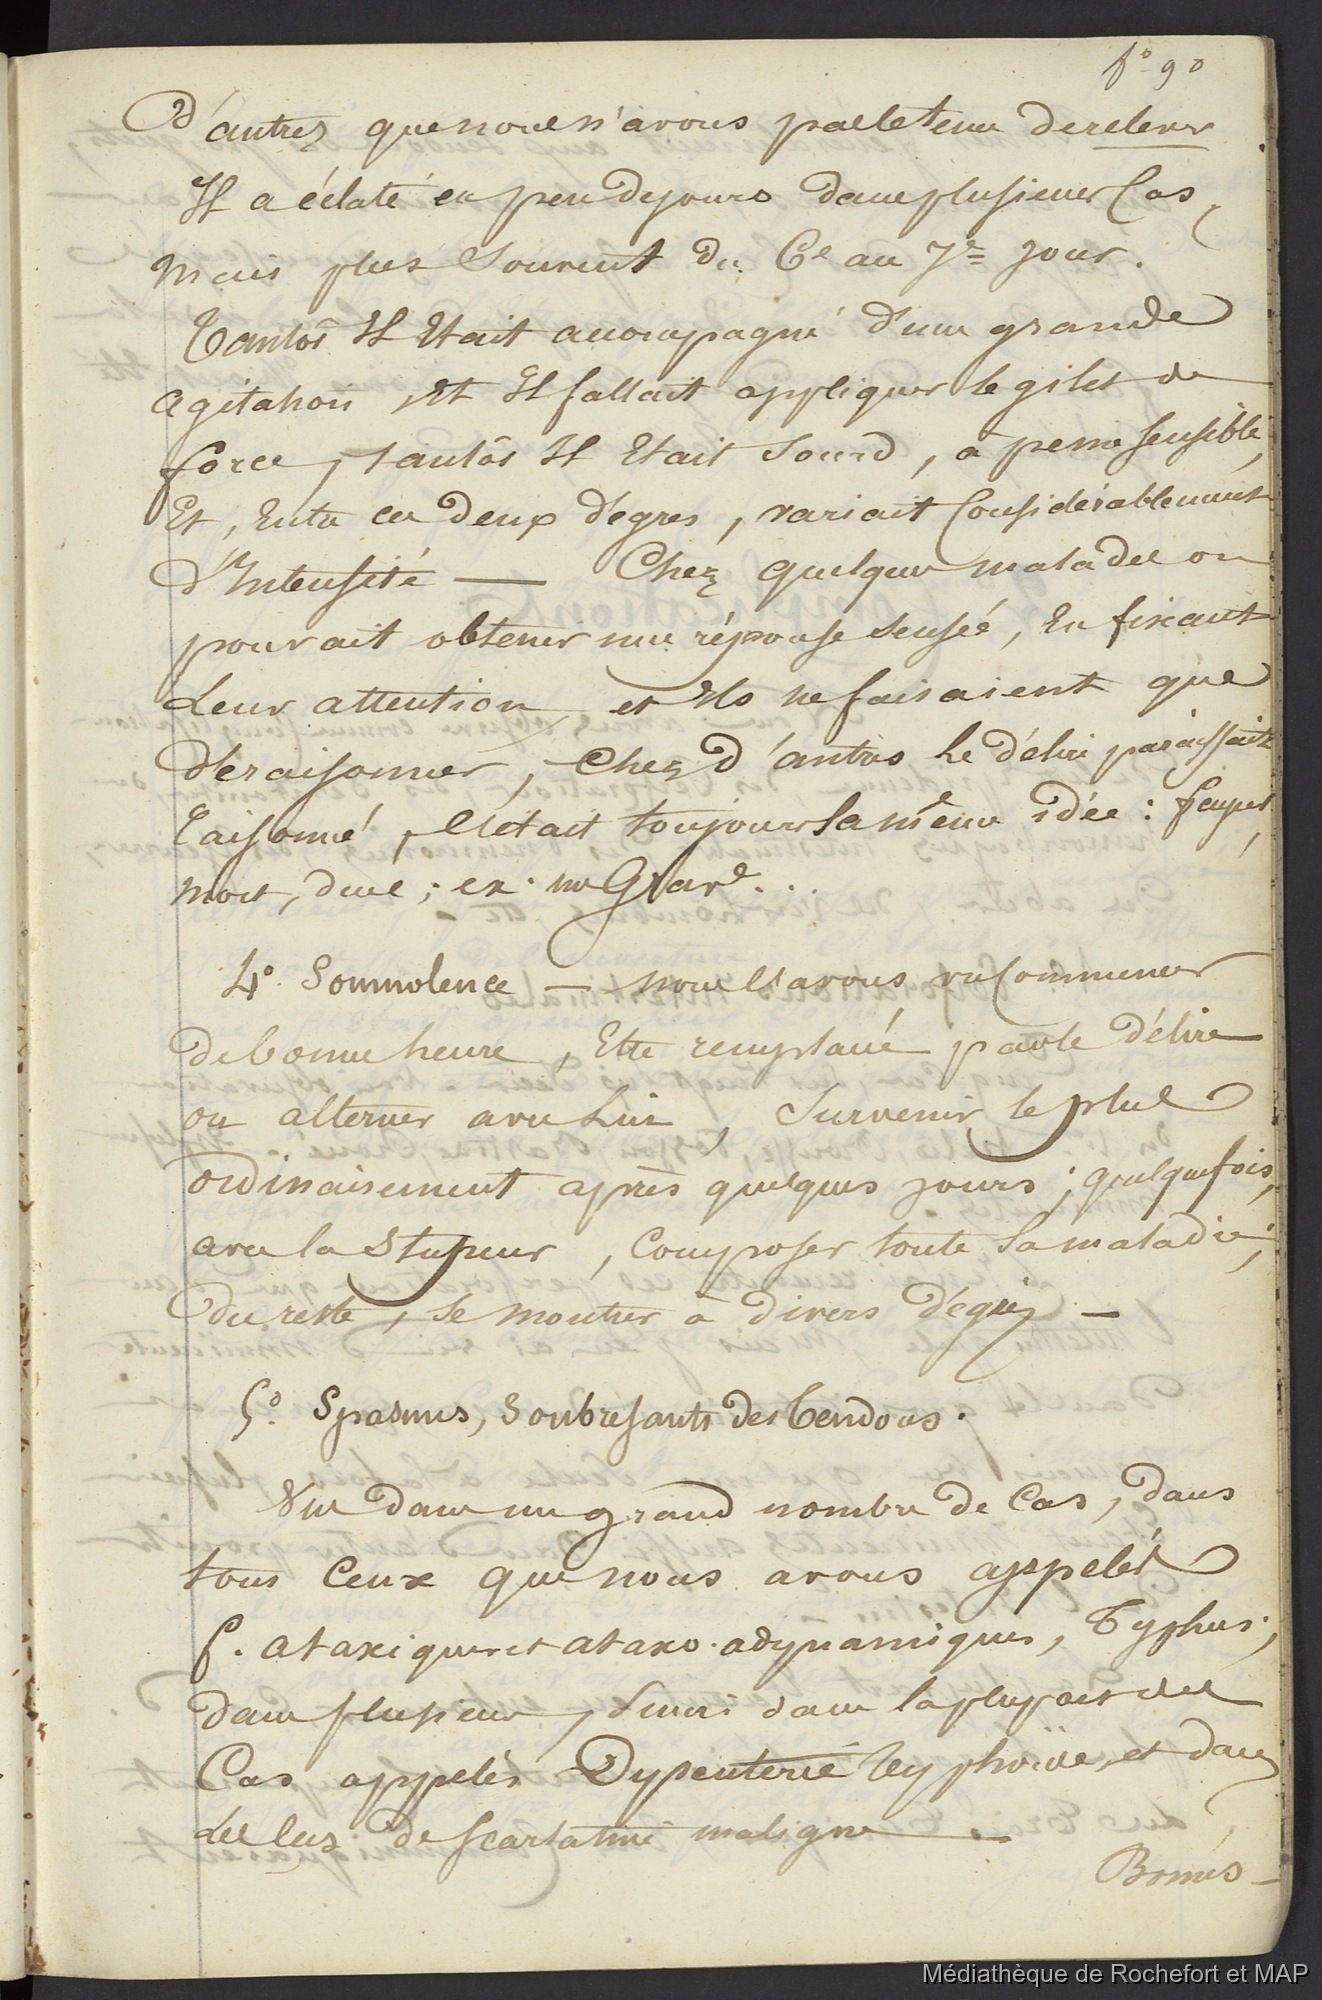 fo 90
d'autres que nous n'avons pas été tenu de relever
Il a éclaté en peu de jours dans plusieurs Cas,
mais plus Souvent du 6e au 7e jour.
Tantôt Il Etait accompagné d'une grande
agitation, Et Il fallait appliquer le gilet de
force, tantôt Il Etait Sourd, à peine Sensible,
Et, Entre ces deux dégrés, variait Considérablement
d'Intensité — Chez quelques malades on
pouvait obtenir une réponse Sensée, En fixant
Leur attention, et Ils ne faisaient que
déraisonner, Chez d'autres le délire paraissait
raisonné, C'était toujours la même idée:
mort, duel; ex. un
4o. Somnolence — nous l'avons vu Commencer
de bonne heure, Etre remplacé par le délire
ou alterner avec Lui, Survenir le plus
ordinairement après quelques jours; quelquefois,
avec la Stupeur, Composer toute la maladie;
du reste, Se montrer à divers dégrés —
5o. Spasmes, Soubresauts des Tendons.
Vu dans un grand nombre de Cas, dans
tous Ceux que nous avons appelés
f. ataxiques et ataxo-adynamiques, Typhus;
dans plusieurs, Suivi dans la plupart des
Cas appelés Dyssenterie Typhoïde, et dans
les Cas de Scarlatine maligne —
Bornés —
Médiathèque de Rochefort et MAP